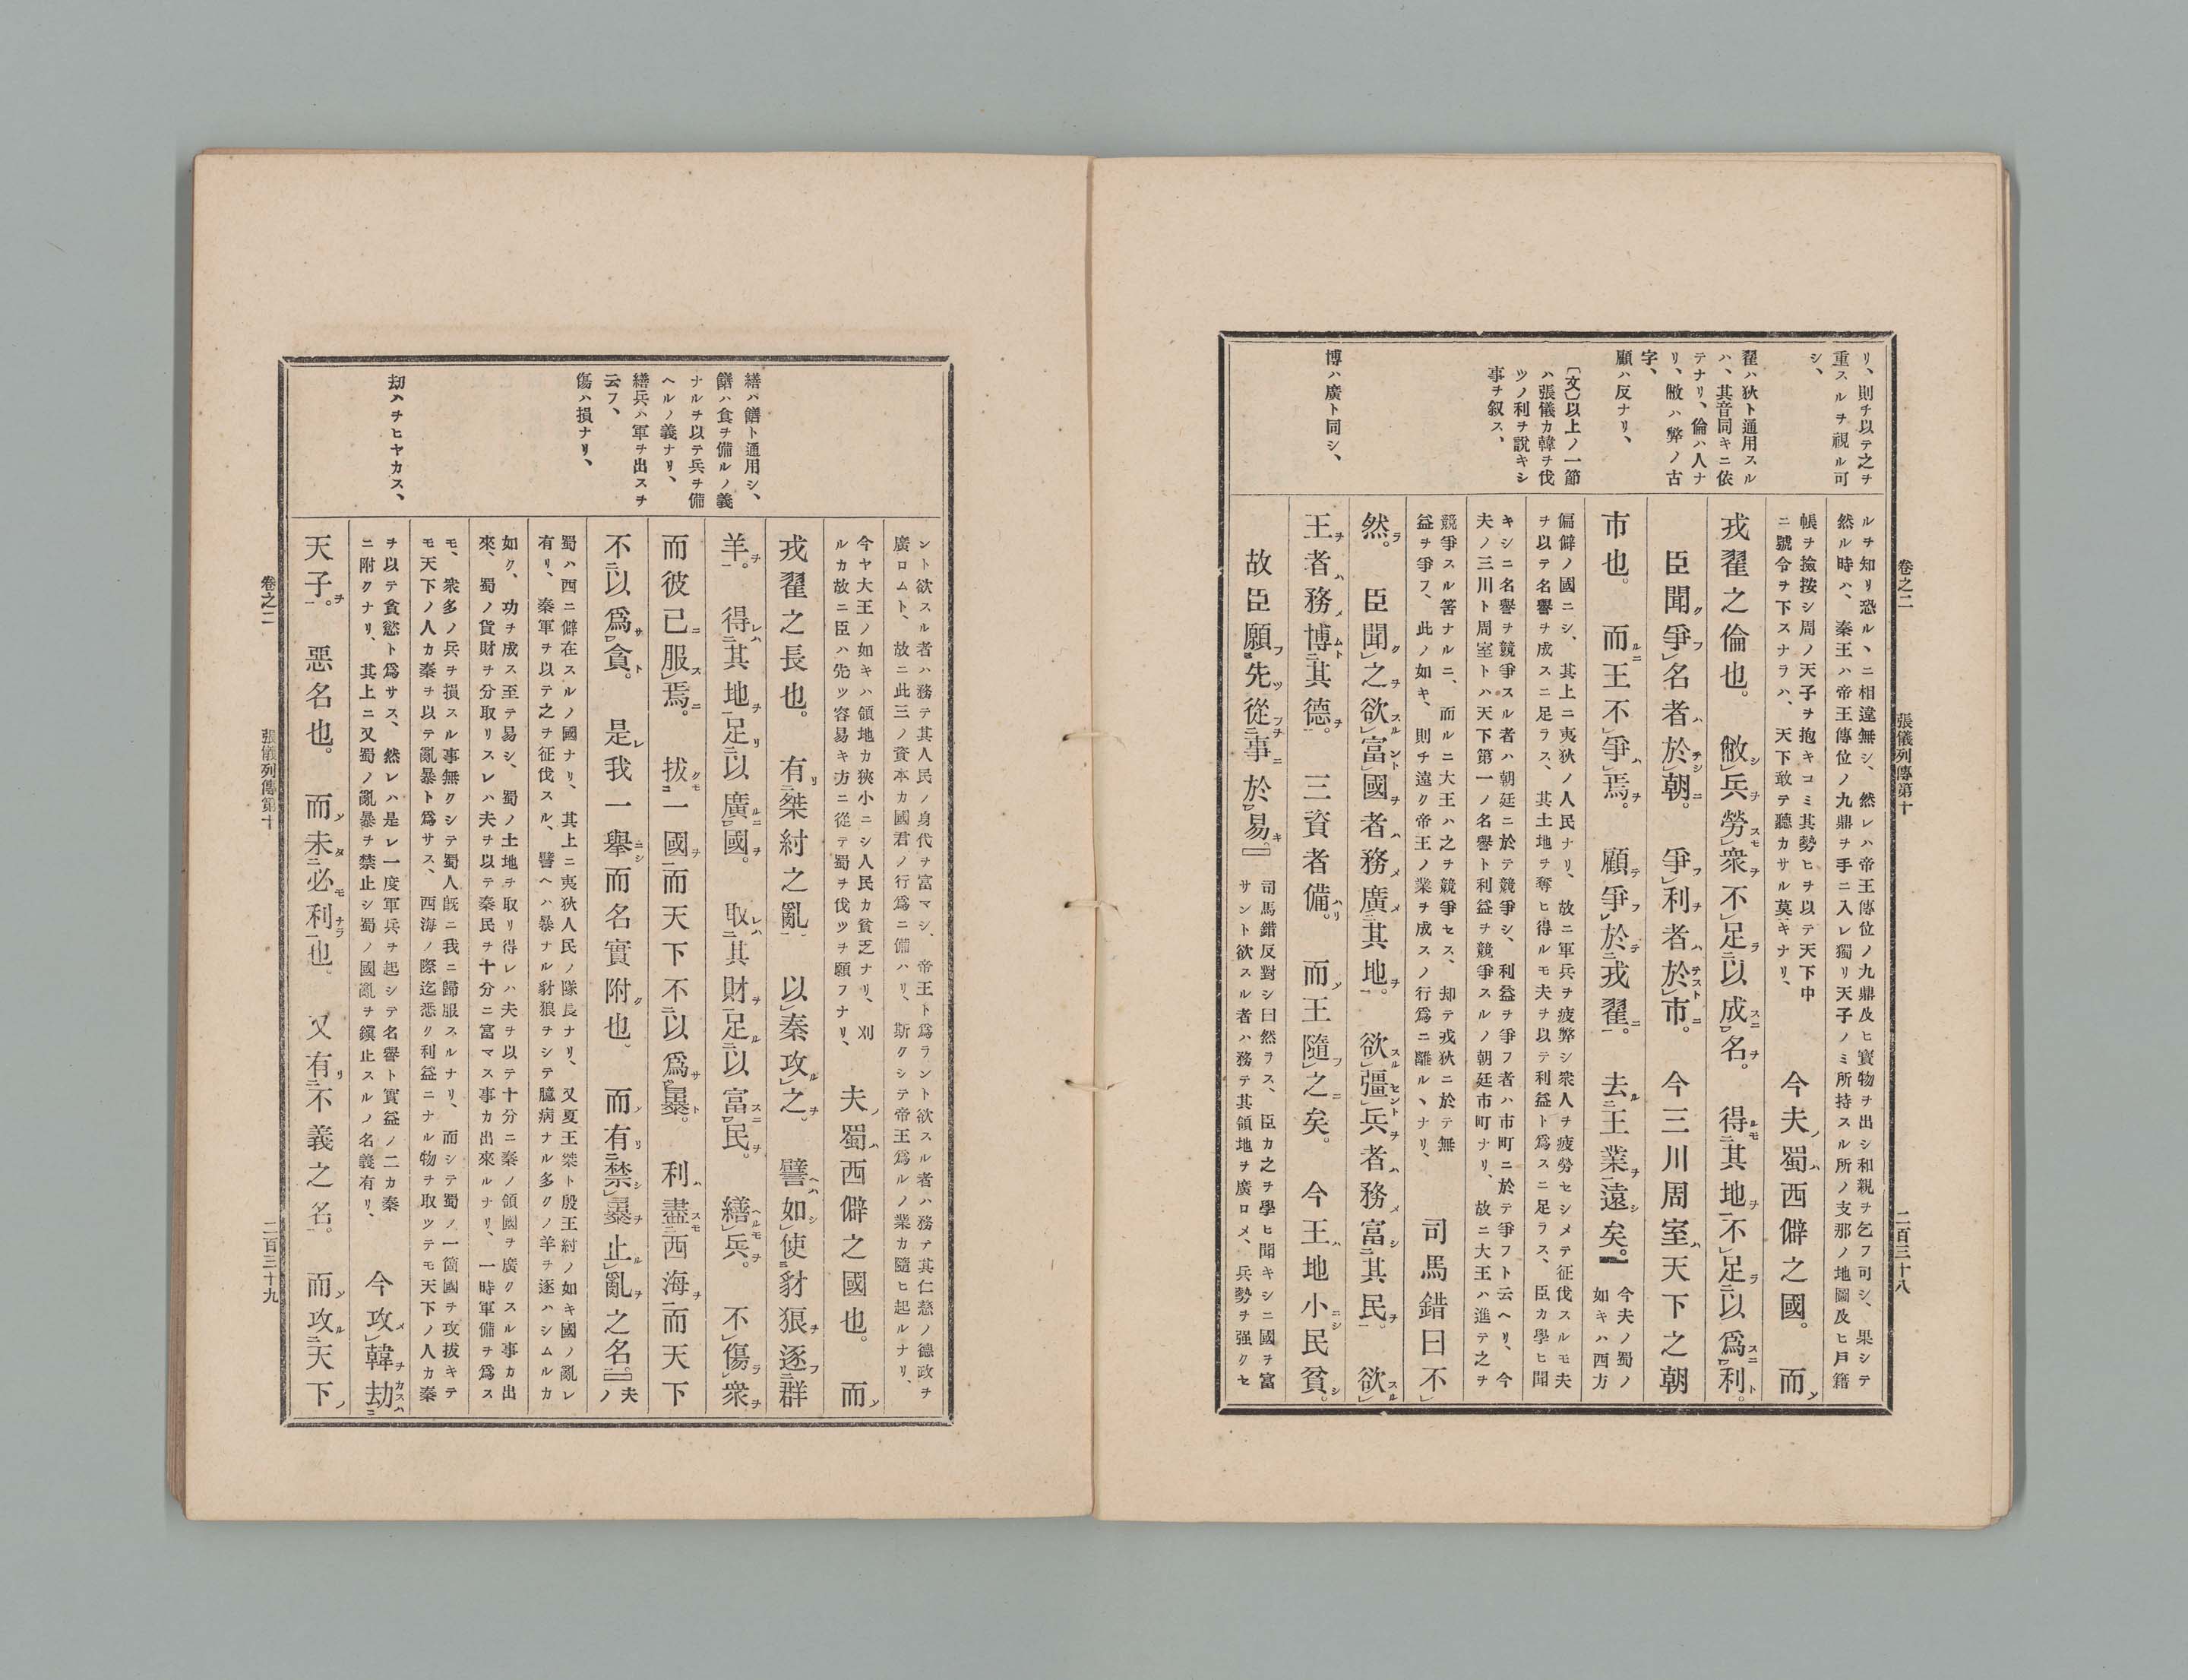 卷之二　張儀列傳第十　二百三十八
リ、則チ以テ之ヲ
重スルヲ視ル可
シ、
翟ハ狄ト通用スル
ハ、其音同キニ依
テナリ、倫ハ人ナ
リ、敝ハ弊ノ古
字、
顧ハ反ナリ、
〔文〕以上ノ一節
ハ張儀カ韓ヲ伐
ツノ利ヲ說キシ
事ヲ叙ス、
博ハ廣ト同シ、
ルヲ知リ恐ルヽニ相違無シ、然レハ帝王傳位ノ九鼎及ヒ寳物ヲ出シ和親ヲ乞フ可シ、果シテ
然ル時ハ、秦王ハ帝王傳位ノ九鼎ヲ手ニ入レ獨リ天子ノミ所持スル所ノ支那ノ地圖及ヒ戸籍
帳ヲ撿按シ周ノ天子ヲ抱キコミ其勢ヒヲ以テ天下中
ニ號令ヲ下スナラハ、天下敢テ聽カサル莫キナリ、
今夫蜀西僻之國。而
戎翟之倫也。敝兵勞衆不足以成名。得其地不足以爲利。
臣聞爭名者於朝。爭利者於市。今三川周室天下之朝
市也。而王不爭焉。顧爭於戎翟。去王業遠矣。』
今夫ノ蜀ノ
如キハ西方
偏僻ノ國ニシ、其上ニ夷狄ノ人民ナリ、故ニ軍兵ヲ疲弊シ衆人ヲ疲勞セシメテ征伐スルモ夫
ヲ以テ名譽ヲ成スニ足ラス、其土地ヲ奪ヒ得ルモ夫ヲ以テ利益ト爲スニ足ラス、臣カ學ヒ聞
キシニ名譽ヲ競爭スル者ハ朝廷ニ於テ競爭シ、利益ヲ爭フ者ハ市町ニ於テ爭フト云ヘリ、今
夫ノ三川ト周室トハ天下第一ノ名譽ト利益ヲ競爭スルノ朝廷市町ナリ、故ニ大王ハ進テ之ヲ
競爭スル筈ナルニ、而ルニ大王ハ之ヲ競爭セス、却テ戎狄ニ於テ無
益ヲ爭フ、此ノ如キ、則チ遠ク帝王ノ業ヲ成スノ行爲ニ離ルヽナリ、
司馬錯曰不
然。臣聞之欲富國者務廣其地。欲彊兵者務富其民。欲
王者務博其德。三資者備。而王隨之矣。今王地小民貧。
故臣願先從事於易。』
司馬錯反對シ曰然ラス、臣カ之ヲ學ヒ聞キシニ國ヲ富
サント欲スル者ハ務テ其領地ヲ廣ロメ、兵勢ヲ强クセ
繕ハ饍ト通用シ、
饍ハ食ヲ備ルノ義
ナルヲ以テ兵ヲ備
ヘルノ義ナリ、
繕兵ハ軍ヲ出スヲ
云フ、
傷ハ損ナリ、
劫ハヲヒヤカス、
ント欲スル者ハ務テ其人民ノ身代ヲ富マシ、帝王ト爲ラント欲スル者ハ務テ其仁慈ノ德政ヲ
廣ロムト、故ニ此三ノ資本カ國君ノ行爲ニ備ハリ、斯クシテ帝王爲ルノ業カ隨ヒ起ルナリ、
今ヤ大王ノ如キハ領地カ狹小ニシ人民カ貧乏ナリ、刈
ルカ故ニ臣ハ先ツ容易キ方ニ從テ蜀ヲ伐ツヲ願フナリ、
夫蜀西僻之國也。而
戎翟之長也。有桀紂之亂。以秦攻之。譬如使豺狼逐群
羊。得其地足以廣國。取其財足以富民。繕兵。不傷衆
而彼已服焉。拔一國而天下不以爲暴。利盡西海而天下
不以爲貪。是我一舉而名實附也。而有禁暴止亂之名。』
夫
ノ
蜀ハ西ニ僻在スルノ國ナリ、其上ニ夷狄人民ノ隊長ナリ、又夏王桀ト殷王紂ノ如キ國ノ亂レ
有リ、秦軍ヲ以テ之ヲ征伐スル、譬ヘハ暴ナル豺狼ヲシテ臆病ナル多クノ羊ヲ逐ハシムルカ
如ク、功ヲ成ス至テ易シ、蜀ノ土地ヲ取リ得レハ夫ヲ以テ十分ニ秦ノ領國ヲ廣クスル事カ出
來、蜀ノ貨財ヲ分取リスレハ夫ヲ以テ秦民ヲ十分ニ富マス事カ出來ルナリ、一時軍備ヲ爲ス
モ、衆多ノ兵ヲ損スル事無クシテ蜀人旣ニ我ニ歸服スルナリ、而シテ蜀ノ一箇國ヲ攻拔キテ
モ天下ノ人カ秦ヲ以テ亂暴ト爲サス、西海ノ際迄悉ク利益ニナル物ヲ取ツテモ天下ノ人カ秦
ヲ以テ貪慾ト爲サス、然レハ是レ一度軍兵ヲ起シテ名譽ト實益ノ二カ秦
ニ附クナリ、其上ニ又蜀ノ亂暴ヲ禁止シ蜀ノ國亂ヲ鎭止スルノ名義有リ、
今攻韓劫
天子。惡名也。而未必利也。又有不義之名。而攻天下
卷之二　張儀列傳第十　二百三十九